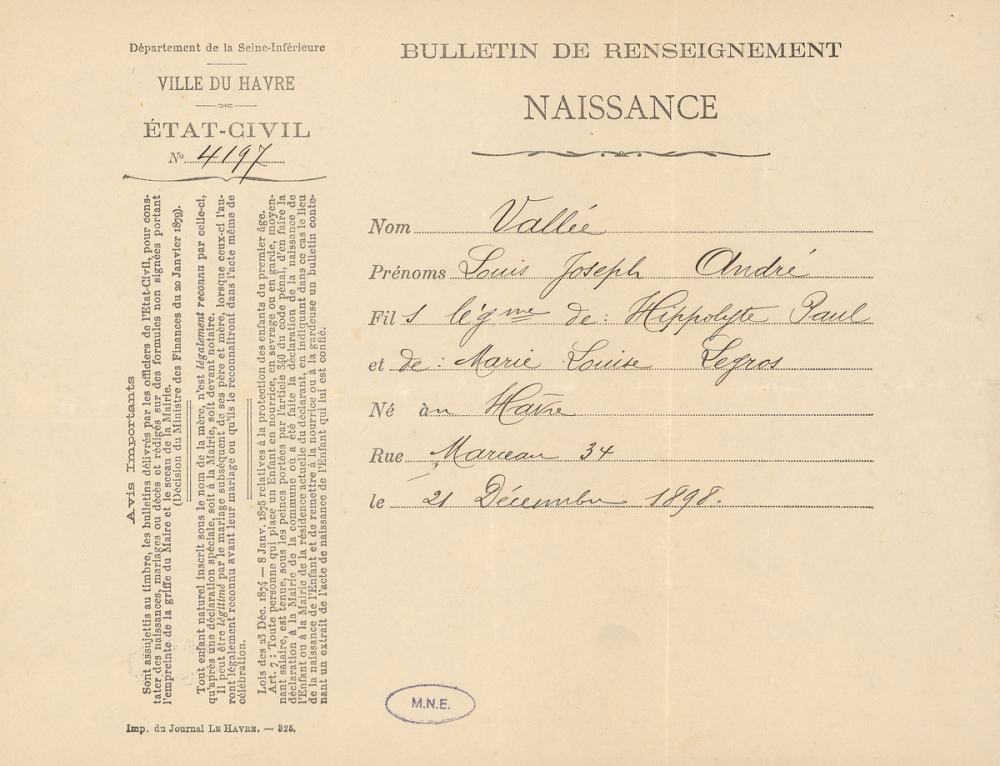 Département de la Seine-Inférieure
VILLE DU HAVRE
ÉTAT-CIVIL
N° 4197
Avis Importants
Sont assujettis au timbre, les bulletins délivrés par les officiers de l'Etat-Civil, pour cons-
tater des naissances, mariages ou décès et rédigés sur des formules non signées portant
l'empreinte de la griffe du Maire et le sceau de la Mairie.
(Décision du Ministre des Finances du 20 Janvier 1879).
Tout enfant naturel inscrit sous le nom de la mère, n'est légalement reconnu par celle-ci,
qu'après une déclaration spéciale, soit à la Mairie, soit devant notaire.
Il peut être légitimé par le mariage subséquent de ses père et mère, lorsque ceux-ci l'au-
ront légalement reconnu avant leur mariage ou qu'ils le reconnaîtront dans l'acte même de
célébration.
Lois des 23 Déc. 1874 — 8 Janv. 1875 relatives à la protection des enfants du premier âge.
Art. 7 : Toute personne qui place un Enfant en nourrice, en sevrage ou en garde, moyen-
nant salaire, est tenue, sous les peines portées par l'article 346 du code pénal, d'en faire la
déclaration à la Mairie de la commune où a été faite la déclaration de la naissance de
l'Enfant ou à la Mairie de la résidence actuelle du déclarant, en indiquant dans ce cas le lieu
de la naissance de l'Enfant et de remettre à la nourrice ou à la gardeuse un bulletin conte-
nant un extrait de l'acte de naissance de l'Enfant qui lui est confié.
Imp. du Journal LE HAVRE. — 325.
BULLETIN DE RENSEIGNEMENT
NAISSANCE
Nom Vallée
Prénoms Louis Joseph André
Fil s légme de : Hippolyte Paul
et de : Marie Louise Legros
Né au Havre
Rue Marceau 34
le 21 Décembre 1898.
M.N.E.